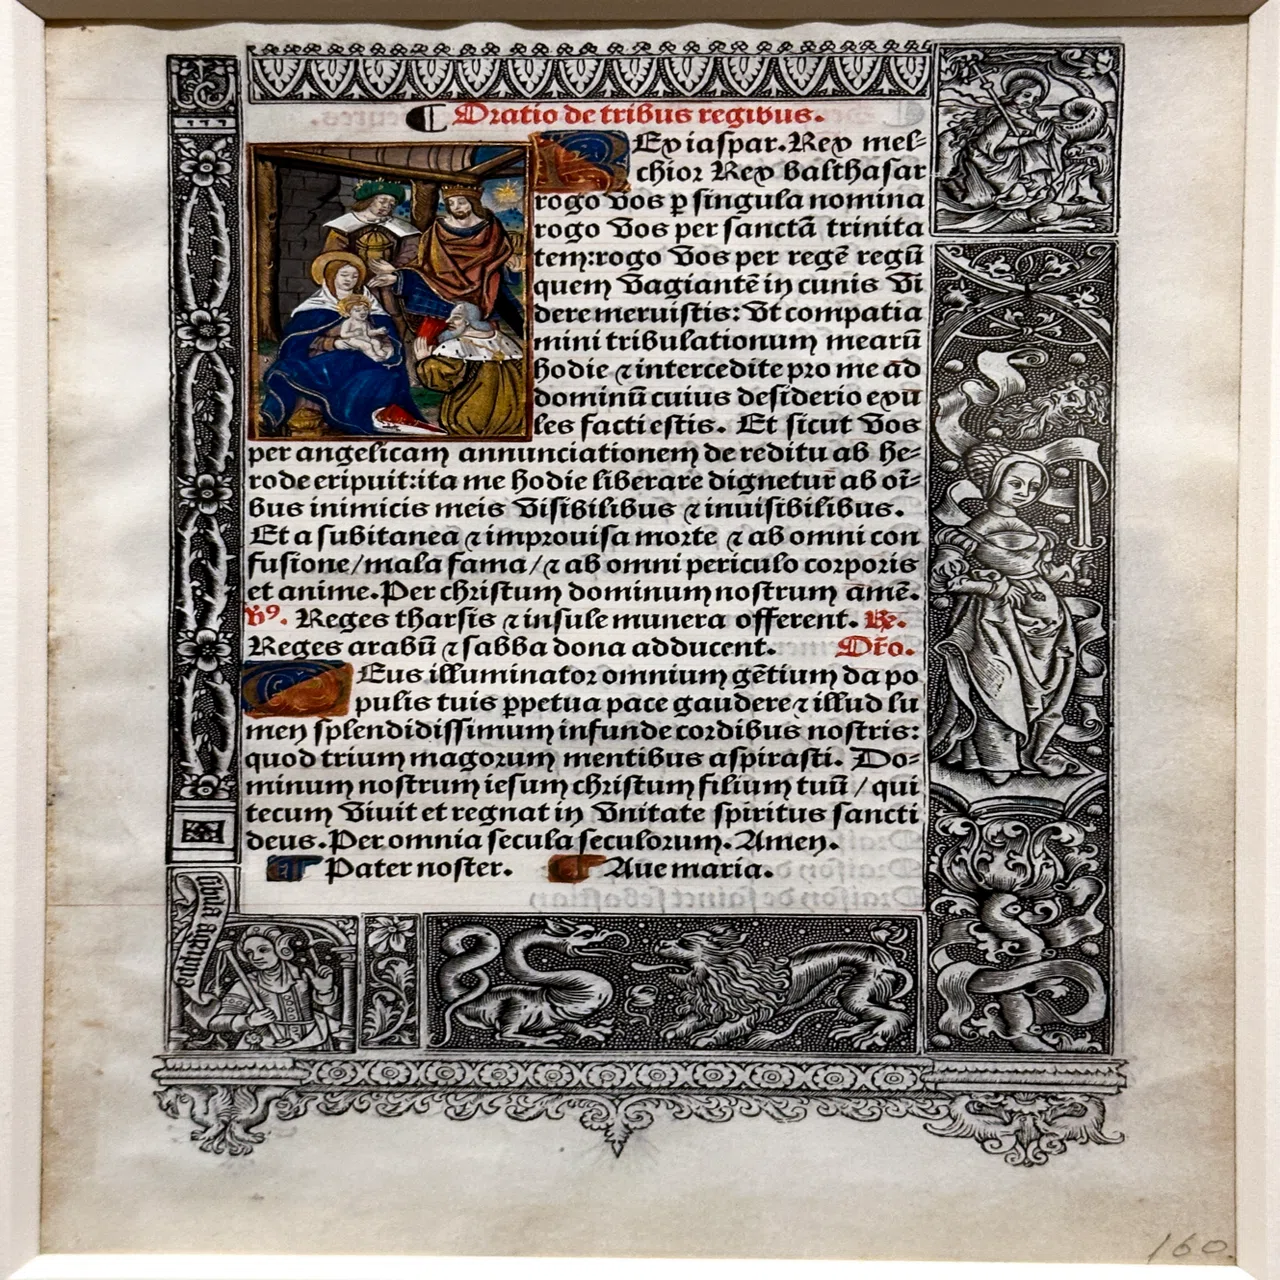 Oratio de tribus regibus.
REx iaspar. Rex mel-
chior Rex balthasar
rogo vos p singula nomina
rogo vos per sanctā trinita
tem: rogo vos per regē regū
quem vagiantē in cunis vi
dere meruistis: vt compatia
mini tribulationum mearū
hodie ⁊ intercedite pro me ad
dominū cuius desiderio exu
les facti estis. Et sicut vos
per angelicam annunciationem de reditu ab he-
rode eripuit: ita me hodie liberare dignetur ab oī-
bus inimicis meis visibilibus ⁊ inuisibilibus.
Et a subitanea ⁊ improuisa morte ⁊ ab omni con
fusione/mala fama/⁊ ab omni periculo corporis
et anime. Per christum dominum nostrum amē.
℣ꝰ. Reges tharsis ⁊ insule munera offerent. ℟.
Reges arabū ⁊ sabba dona adducent. Oro.
DEus illuminator omnium gētium da po
pulis tuis ꝑpetua pace gaudere ⁊ illud lu
men splendidissimum infunde cordibus nostris:
quod trium magorum mentibus aspirasti. Do-
minum nostrum iesum christum filium tuū / qui
tecum viuit et regnat in vnitate spiritus sancti
deus. Per omnia secula seculorum. Amen.
Pater noster. Aue maria.
160.